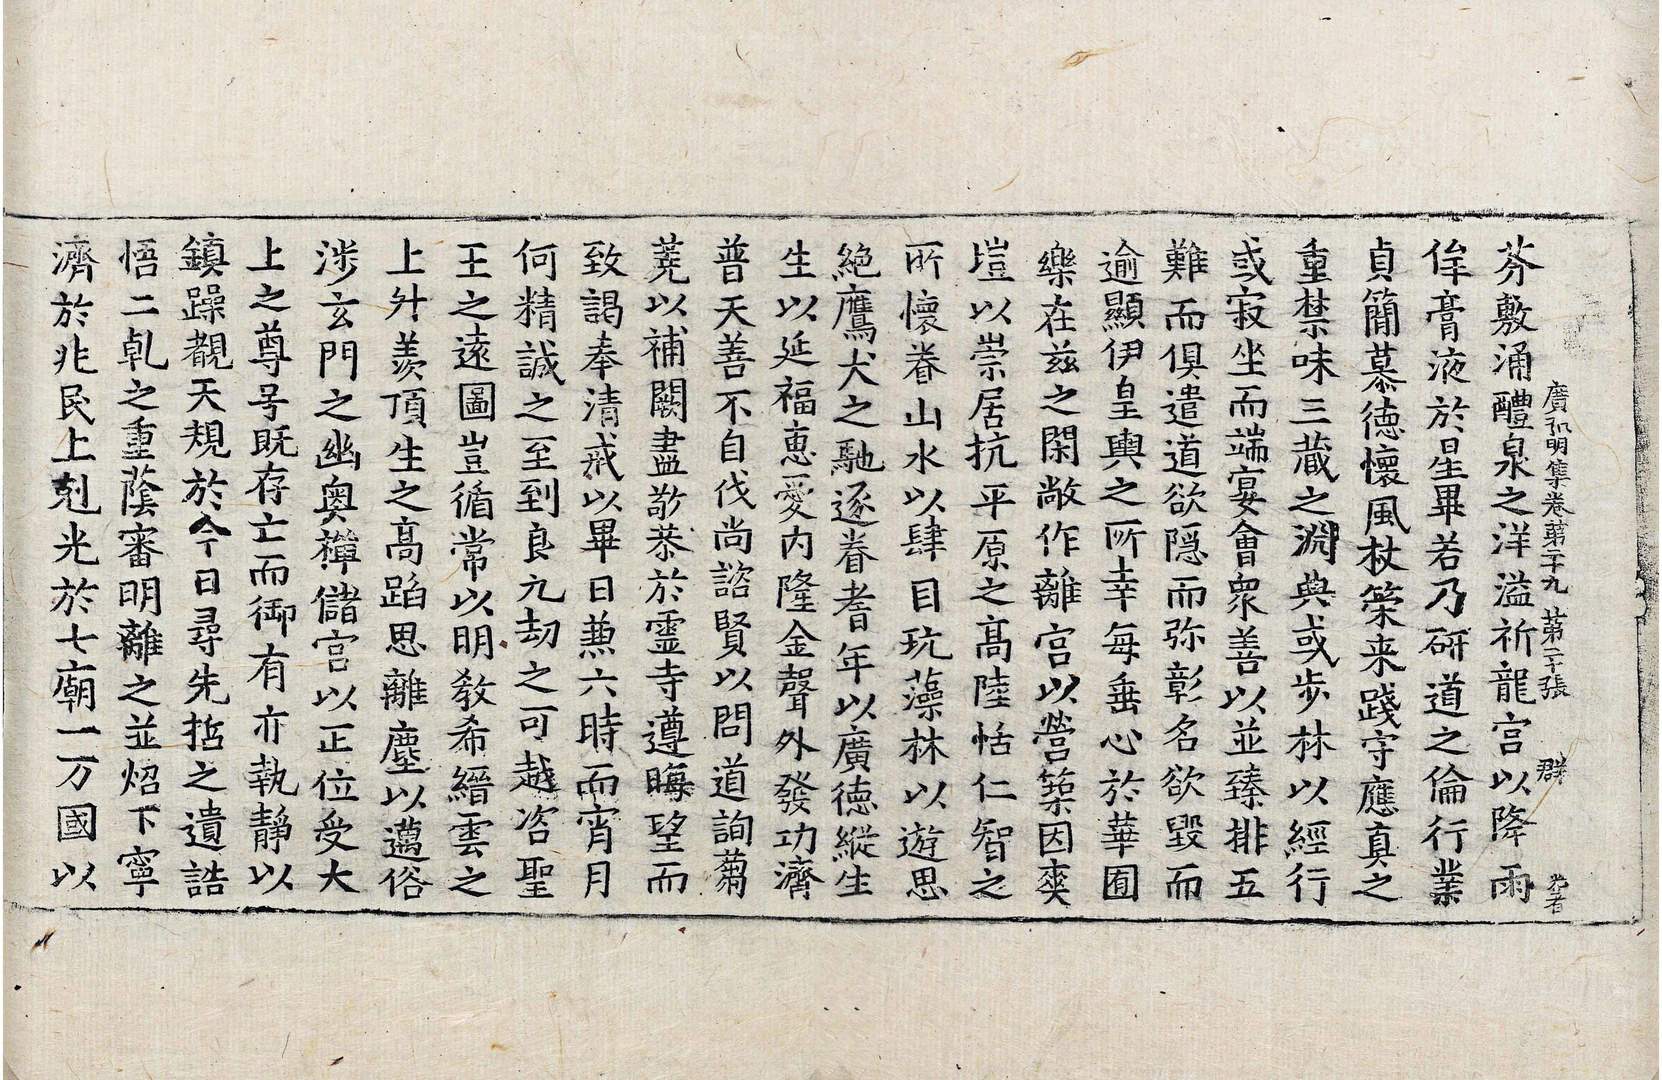 廣弘明集卷第二十九 第二十張 群
芬敷涌醴泉之洋溢祈龍宮以降雨
侔膏液於星畢若乃研道之倫行業
貞簡慕德懷風杖䇿来踐守應真之
重禁味三藏之淵典或步林以經行
或寂坐而端宴會衆善以並臻排五
難而俱遣道欲隱而弥彰名欲毀而
逾顯伊皇輿之所幸每垂心於華囿
樂在兹之閑敞作離宮以營築因爽
塏以崇居抗平原之高陸恬仁智之
所懷眷山水以肆目玩藻林以遊思
絶鷹犬之馳逐眷耆年以廣德縱生
生以延福惠愛内隆金聲外發功濟
普天善不自伐尚諮賢以問道詢蒭
蕘以補闕盡敬恭於靈寺遵晦望而
致謁奉清戒以畢日兼六時而宵月
何精誠之至到良九劫之可越咨聖
王之遠圖豈循常以明教希縉雲之
上升羨頂生之高蹈思離塵以邁俗
涉玄門之幽奧禪儲宮以正位受大
上之尊号既存亡而御有亦執靜以
鎮躁覩天規於今日尋先哲之遺誥
悟二乹之重蔭審明離之並炤下寧
濟於兆民上剋光於七廟一万國以